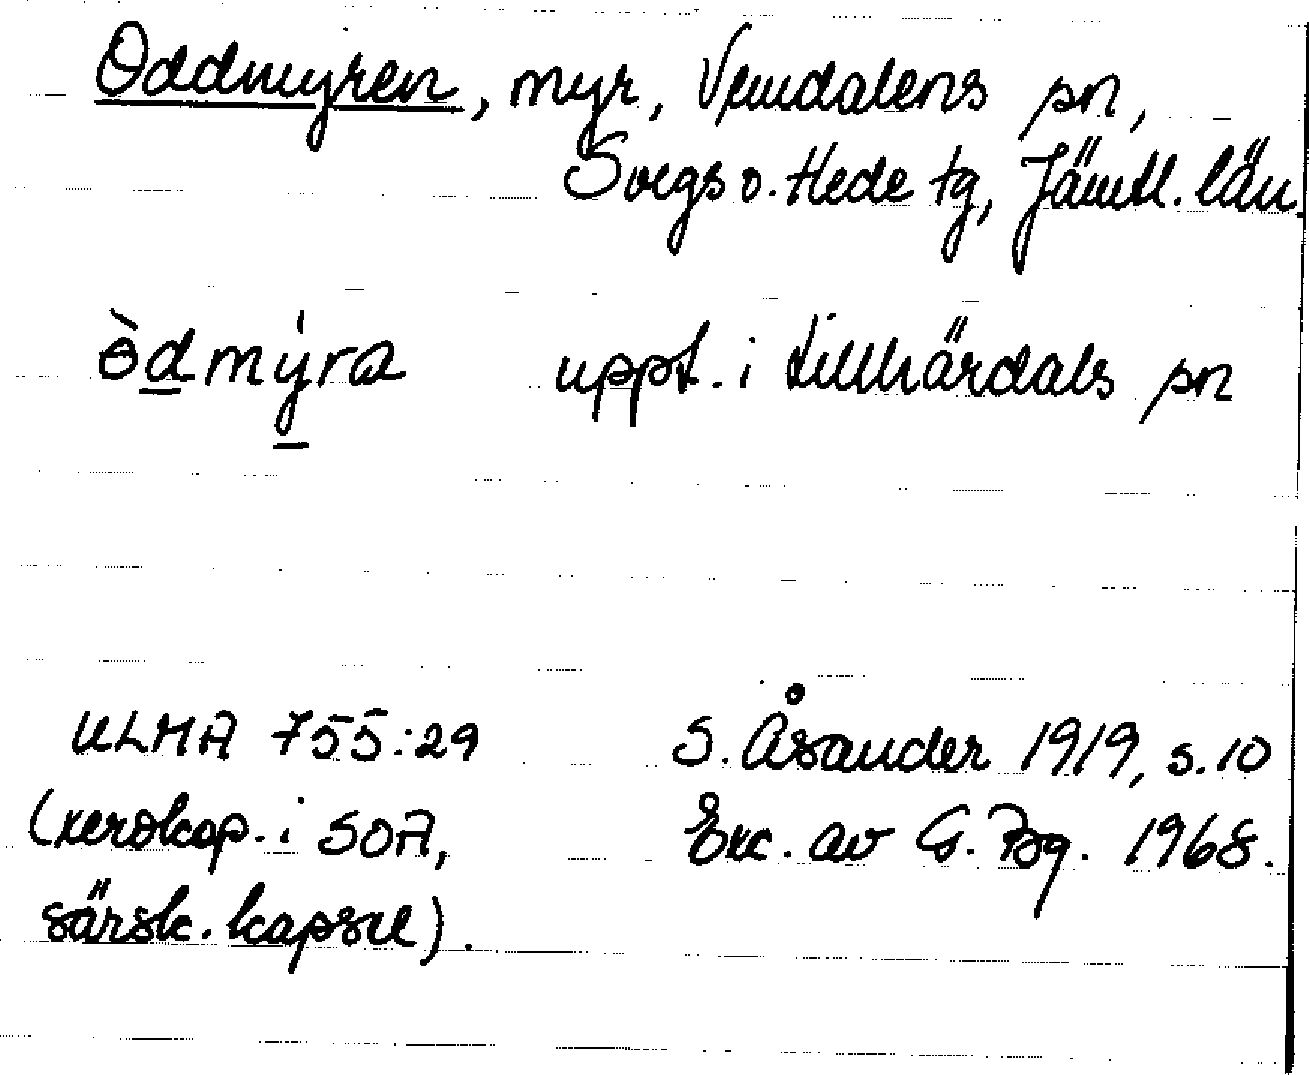 Oddmyren, myr, Vemdalens sn,
Svegs o. Hede tg, Jämtl. län.
ò̵dmýra uppt. i Lillhärdals sn
ULMA 755:29 S. Åsander 1919, s. 10
(xerokop. i SOA, Exc. av G. Bg. 1968.
särsk. kapsel).